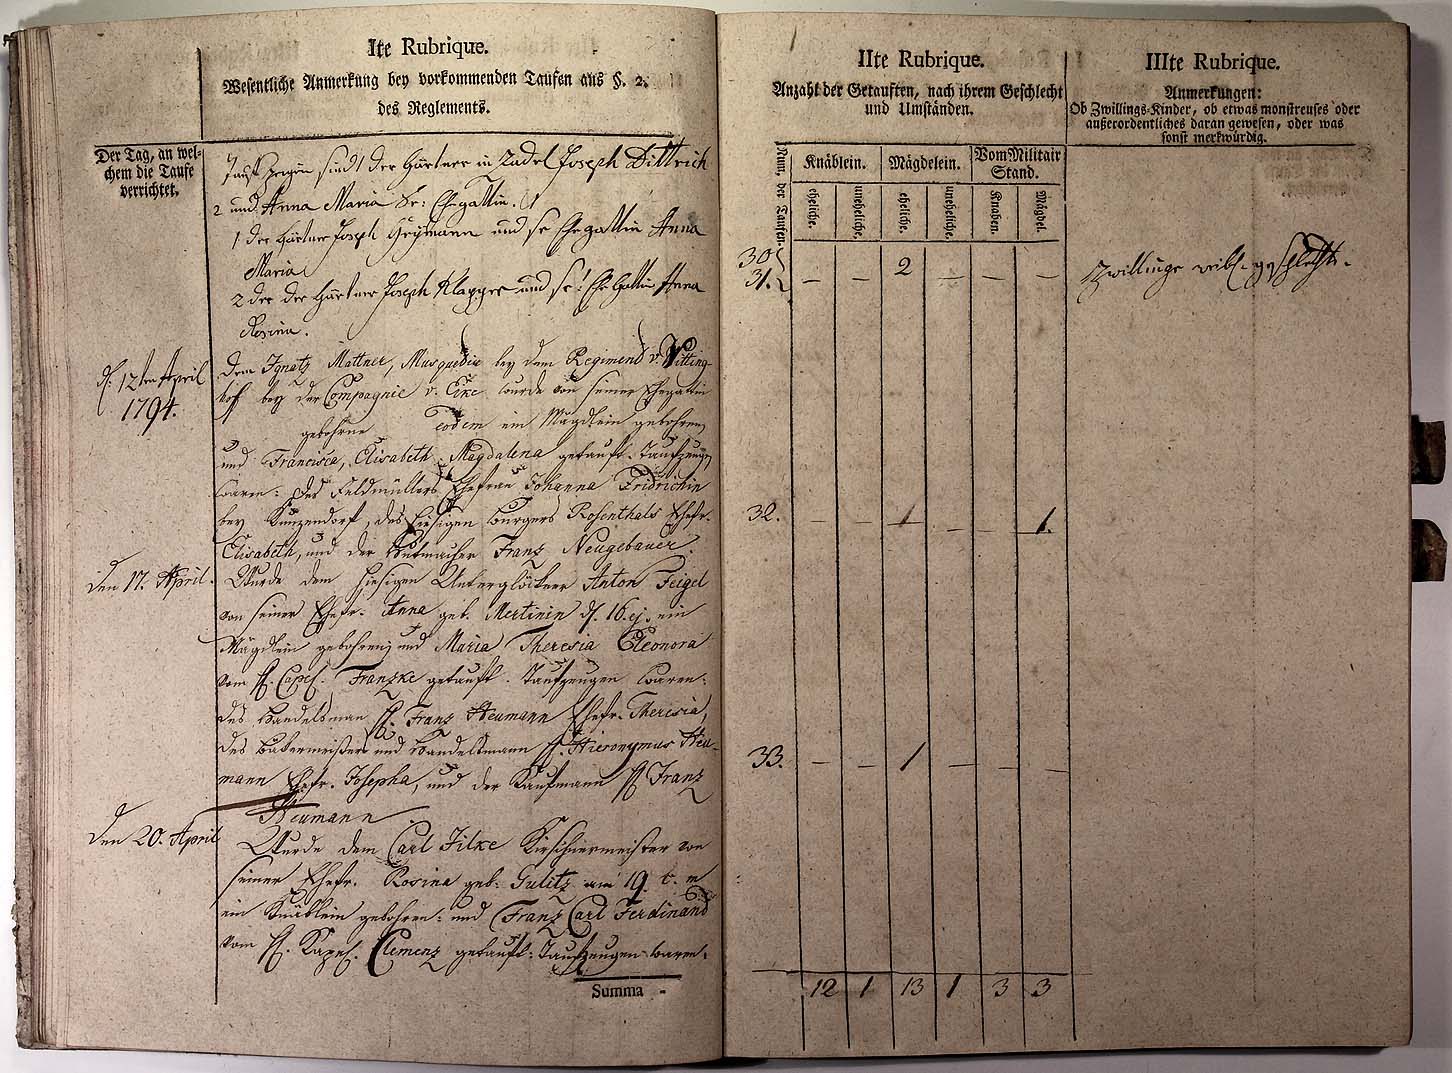 Ite Rubrique.
Wesentliche Anmerkung bey vorkommenden Taufen aus §. 2.
des Reglements.
Der Tag, an wel-
chem die Taufe
verrichtet.
sind 1 der Gärtner in Zadel Joseph Dittrich
2 und Anna Maria Ehegattin.
1. der Gärtner Joseph und se Ehegattin Anna
Maria
2 der der Gärtner Joseph Klapper und se: Ehegattin Anna
Rosina.
d. 12ten April
1794.
Dem Ignatz Mattner, Musquetir bey dem Regiment v. Vitting-
hof bey der Compagnie v. Eike wurde von seiner Ehegattin
gebohrne eodem ein Mägdlein gebohren
und Francisca, Elisabeth, Magdalena getauft. Taufzeugen
waren: des Feldmüllers Ehefrau Johanna Fridrichin
bey Kunzendorf, des hiesigen Burgers Rosenthals Ehefr.
Elisabeth, und der Hutmacher Franz Neugebauer.
den 17. April.
Wurde dem hiesigen Unterglöckner Anton Feigel
von seiner Ehefr. Anna geb. Mertinin d. 16. ej. ein
Mägdlein gebohren; und Maria Theresia Eleonora
vom H. Capel. Franzke getauft. Taufzeugen waren:
des Handelsman H. Franz Neumann Ehefr. Theresia,
des und Handelsmann H. Hieronymus Neu-
mann Ehefr. Josepha, und der Kaufmann H Franz
Neumann
den 20. April
Wurde dem Carl Filke Kirschnermeister von
seiner Ehefr. Rosina geb: Gulitz am 19. c. m
ein Knäblein gebohren: und Franz Carl Ferdinand
vom H. Kapel. Clemenz getauft: Taufzeugen waren:
Summa -
IIte Rubrique.
Anzahl der Getauften, nach ihrem Geschlecht
und Umständen.
Num. der Taufen.
Knäblein. Mägdelein. Vom Militair
Stand.
eheliche. uneheliche, eheliche. uneheliche. Knaben. Mägdel.
30
31. — — 2 — — —
32. — — 1 — — 1.
33. — — 1 — — —
12 1 13 1 3 3
IIIte Rubrique.
Anmerkungen:
Ob Zwillings-Kinder, ob etwas monstreuses oder
außerordentliches daran gewesen, oder was
sonst merkwürdig.
Zwillinge weibl. geschlechts.